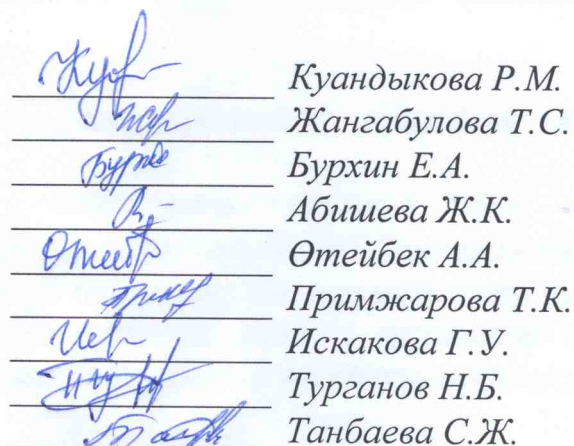 Куандыкова Р.М.
Жангабулова Т.С.
Бурхин Е.А.
Абишева Ж.К.
Өтейбек А.А.
Примжарова Т.К.
Искакова Г.У.
Турганов Н.Б.
Танбаева С.Ж.